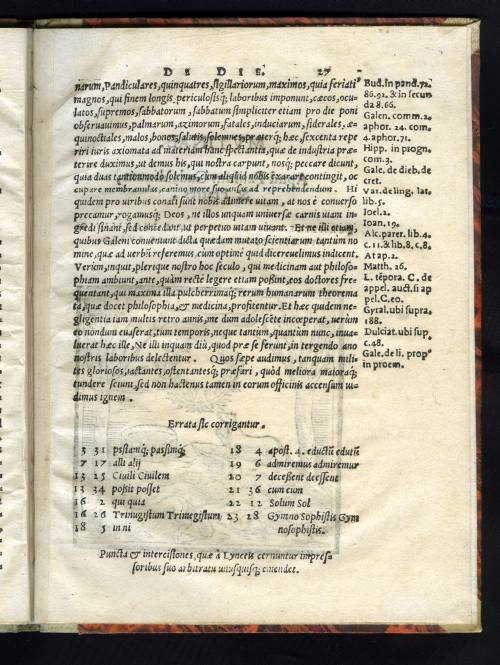 DE DIE. 27
narum, Pandiculares, quinquatres, sigillariorum, maximos, quia feriati
magnos, qui finem longis, periculosisq; laboribus imponunt, cæcos, ocu-
latos, supremos, sabbatorum, sabbatum simpliciter etiam pro die poni
obseruauimus, palmarum, azimorum, fatales, induciarum, siderales, æ-
quinoctiales, malos, honos, salutis, solemnes, præterq; hæc, sexcenta repe
riri iuris axiomata ad materiam hanc spectantia, quæ de industria præ-
terire duximus, ut demus his, qui nostra carpunt, nosq; peccare dicunt,
quia duas tantiommodo solemnes, cum aliquid nobis exarare contingit, oc
cupare membranulas, canino more suo ansas ad reprehendendum. Hi
quidem pro uiribus conati sunt nobis adimere uitam, at nos è conuerso
precamur, rogamusq; Deos, ne illos unquam uniuersæ carnis uiam in-
gredi sinant, sed concedant ut perpetuo uitam uiuant. Et ne illi etiam,
quibus Galeni conuenunt dicta quædam mutato scientiarum tantùm no
mine, quæ ad uerbũ referemus, cum optimè quid dicere uelimus indicent.
Verùm, inquit, plerique nostro hoc seculo, qui medicinam aut philoso-
phiam ambiunt, ante, quàm rectè legere etiam possint, eos doctores fre-
quentant, qui maxima illa pulcherrimaq; rerum humanarum theorema
ta, quæ docet philosophia, & medicina, profitentur. Et hæc quidem ne-
gligentia iam multis retro annis, me dum adolescẽte incœperat, uerùm
eo nondum euaserat, tum temporis, neque tantùm, quantùm nunc, inua-
luerat hæc ille. Ne illi inquam diù, quod præ se ferunt, in tergendo ano
nostris laboribus delectentur. Quos sæpe audimus, tanquam mili-
tes gloriosos, iactantes, ostentantesq; præfari, quòd meliora maioraq;
cundere sciunt, sed non hactenus tamen in eorum officinis accensum ui-
dimus ignem.
Bud. in pand. 72.
86. 92. & in secun
da 8. 66.
Galen. comm. 2.
aphor. 24. com.
4. aphor. 71.
Hipp. in progn.
com. 3.
Gale. de dieb. de
cret.
Var. de ling. lat.
lib. 5.
Ioel. 2.
Ioan. 19.
Alc. parer. lib. 4.
c. 11. & lib. 8. c. 8.
At ap. 2.
Matth. 26.
L. tẽpora. C. de
appel. auct. si ap
pel. C. eo.
Gyral. ubi supra
188.
Dulciat. ubi sup,
c. 48.
Gale. de li. prop
in proem.
Errata sic corrigantur.
3 31 psstamq; passimq;
7 17 alli alij
13 25 Ciuili Ciuilem
13 34 possit posset
16 2 qui quia
16 26 Trinugistum Trimegistum
18 5 in ni
18 4 apost. 4. eductũ edutũ
19 6 admiremus admiremur
20 7 decessent deessent
21 36 cum eum
22 12 Solum Sol
23 28 Gymno Sophistis Gym
nosophistis.
Puncta & intercisiones, quæ à Lynceis cernuntur impres-
soribus suo arbitratu unusquisq; emendet.